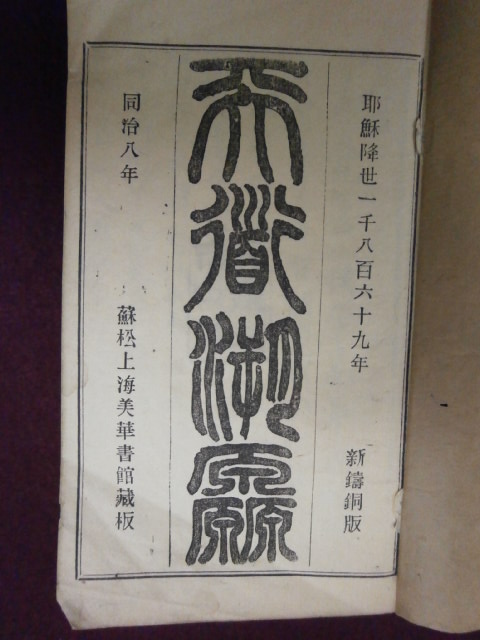 耶穌降世一千八百六十九年
新鑄銅版
天道溯厵
同治八年
蘇松上海美華書館藏板